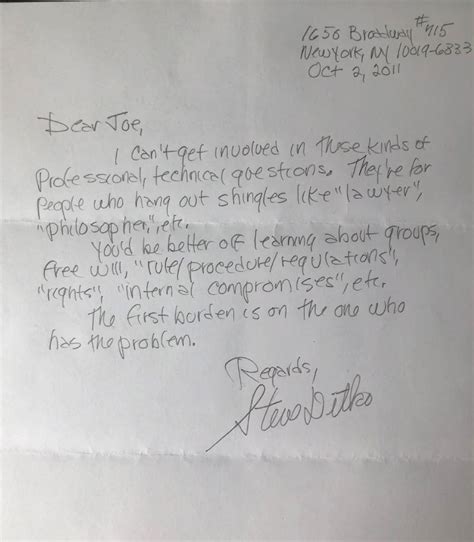 1650 Broadway #715
New York, NY 10019-6833
Oct 2, 2011
Dear Joe,
I can't get involved in those kinds of
Professional, technical questions. They're for
people who hang out shingles like "lawyer",
"philosopher," etc.
You'd be better off learning about groups,
free will, "rule/procedure/regulations",
"rights", "internal compromises", etc.
The first burden is on the one who
has the problem.
Regards,
Steve Ditko